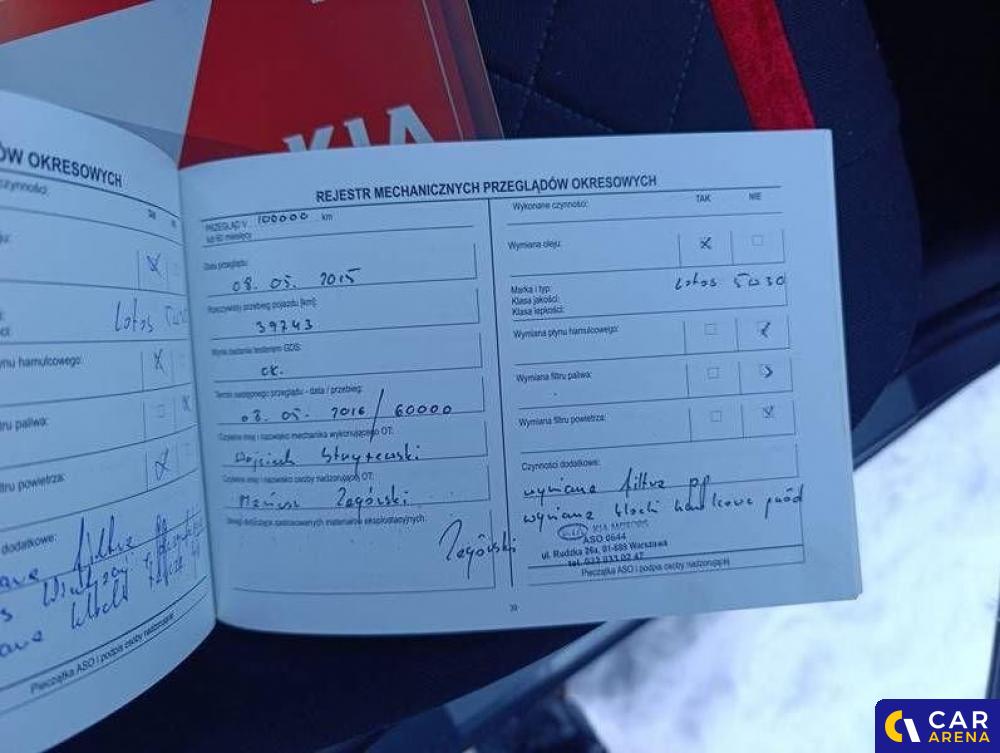 KIA
ÓW OKRESOWYCH
czynności:
TAK
Lotos 5W30
ynu hamulcowego:
tru paliwa:
filtru powietrza:
dodatkowe:
Pieczątka ASO i podpis osoby nadzorującej
REJESTR MECHANICZNYCH PRZEGLĄDÓW OKRESOWYCH
PRZEGLĄD V 100000 km
lub 60 miesięcy
Data przeglądu:
08. 05. 2015
Rzeczywisty przebieg pojazdu [km]:
39743
Wynik badania testerem GDS:
ok.
Termin następnego przeglądu - data / przebieg:
08. 05. 2016 / 60000
Czytelne imię i nazwisko mechanika wykonującego OT:
Wojciech
Czytelne imię i nazwisko osoby nadzorującej OT:
Mariusz Zagórski
Uwagi dotyczące zastosowanych materiałów eksploatacyjnych:
Zagórski
Wykonane czynności:
TAK
NIE
Wymiana oleju:
Marka i typ:
Lotos 5W30
Klasa jakości:
Klasa lepkości:
Wymiana płynu hamulcowego:
Wymiana filtru paliwa:
Wymiana filtru powietrza:
Czynności dodatkowe:
wymiana filtra pp
wymiana klocki hamulcowe przód
KIA MOTORS
ASO 0644
ul. Rudzka 26a, 01-689 Warszawa
Pieczątka ASO i podpis osoby nadzorującej
39
CAR
ARENA